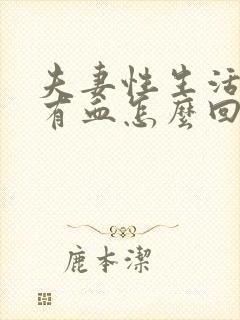 夫妻性生活
有血怎麼回
鹿本潔